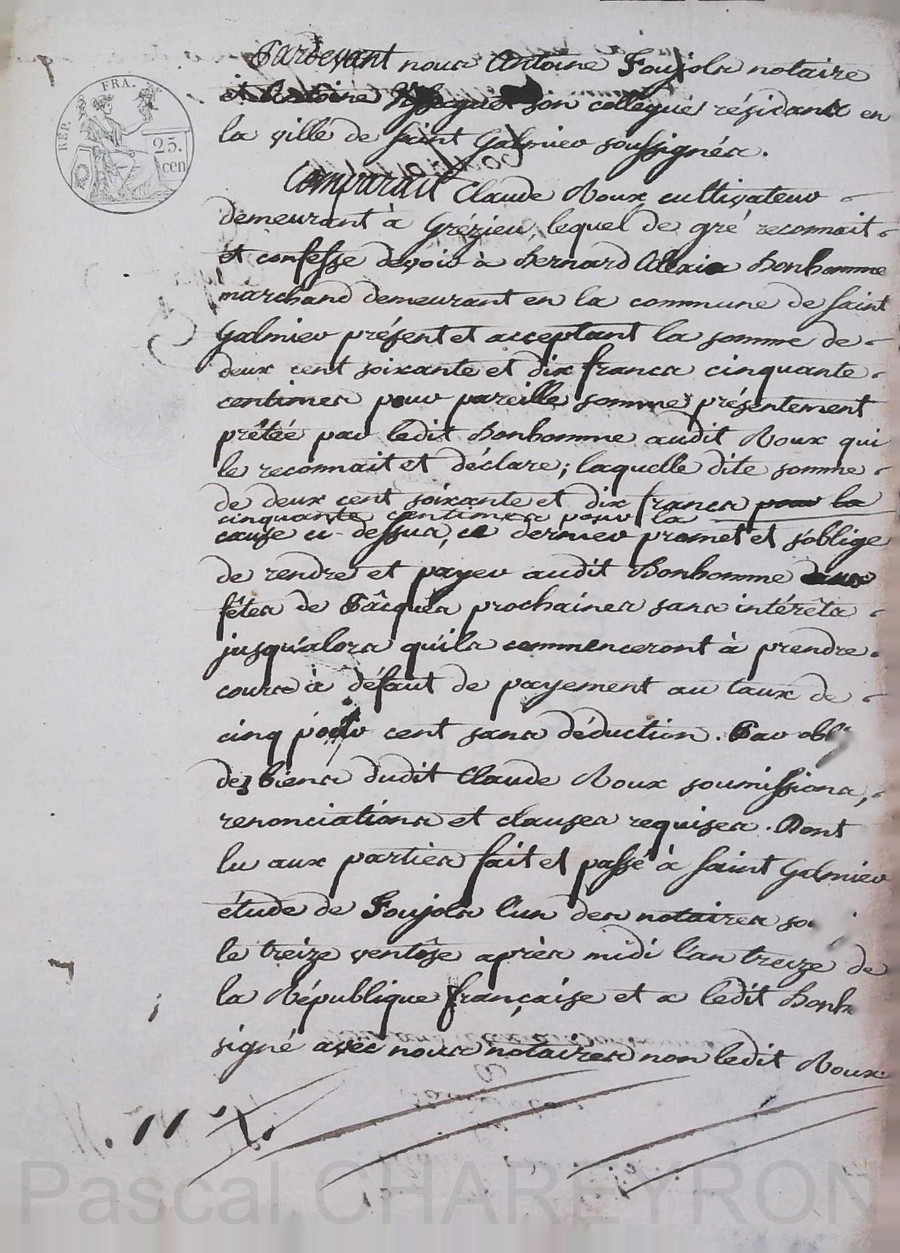 REP. FRA.
25.
cen
Pardevant nous Antoine Foujols notaire
et Antoine son collegue résidants en
la ville de Saint Galmier soussignés.
Comparait Claude Roux cultivateur
demeurant à Grézieu, lequel de gré reconnait
et confesse devoir à Bernard Alexis Bonhomme
marchand demeurant en la commune de Saint
Galmier présent et acceptant la somme de
deux cent soixante et dix francs cinquante
centimes pour pareille somme présentement
prêtée par ledit Bonhomme audit Roux qui
le reconnait et déclare; laquelle dite somme
de deux cent soixante et dix francs pour la
cinquante centimes pour la
cause ci-dessus, ce dernier promet et s'oblige
de rendre et payer audit Bonhomme aux
fêtes de Pâcques prochaines sans intérêts
jusqu'alors qu'ils commenceront à prendre
cours à défaut de payement au taux de
cinq pour cent sans déduction. Par obl
des biens dudit Claude Roux soumissions,
renonciations et clauses requises. Dont
lu aux parties fait et passé à Saint Galmier
étude de Foujols l'un des notaires so
le treize ventôse après midi l'an treize de
la République française et a ledit Bonh
signé avec nous notaires non ledit Roux
Pascal CHAREYRON